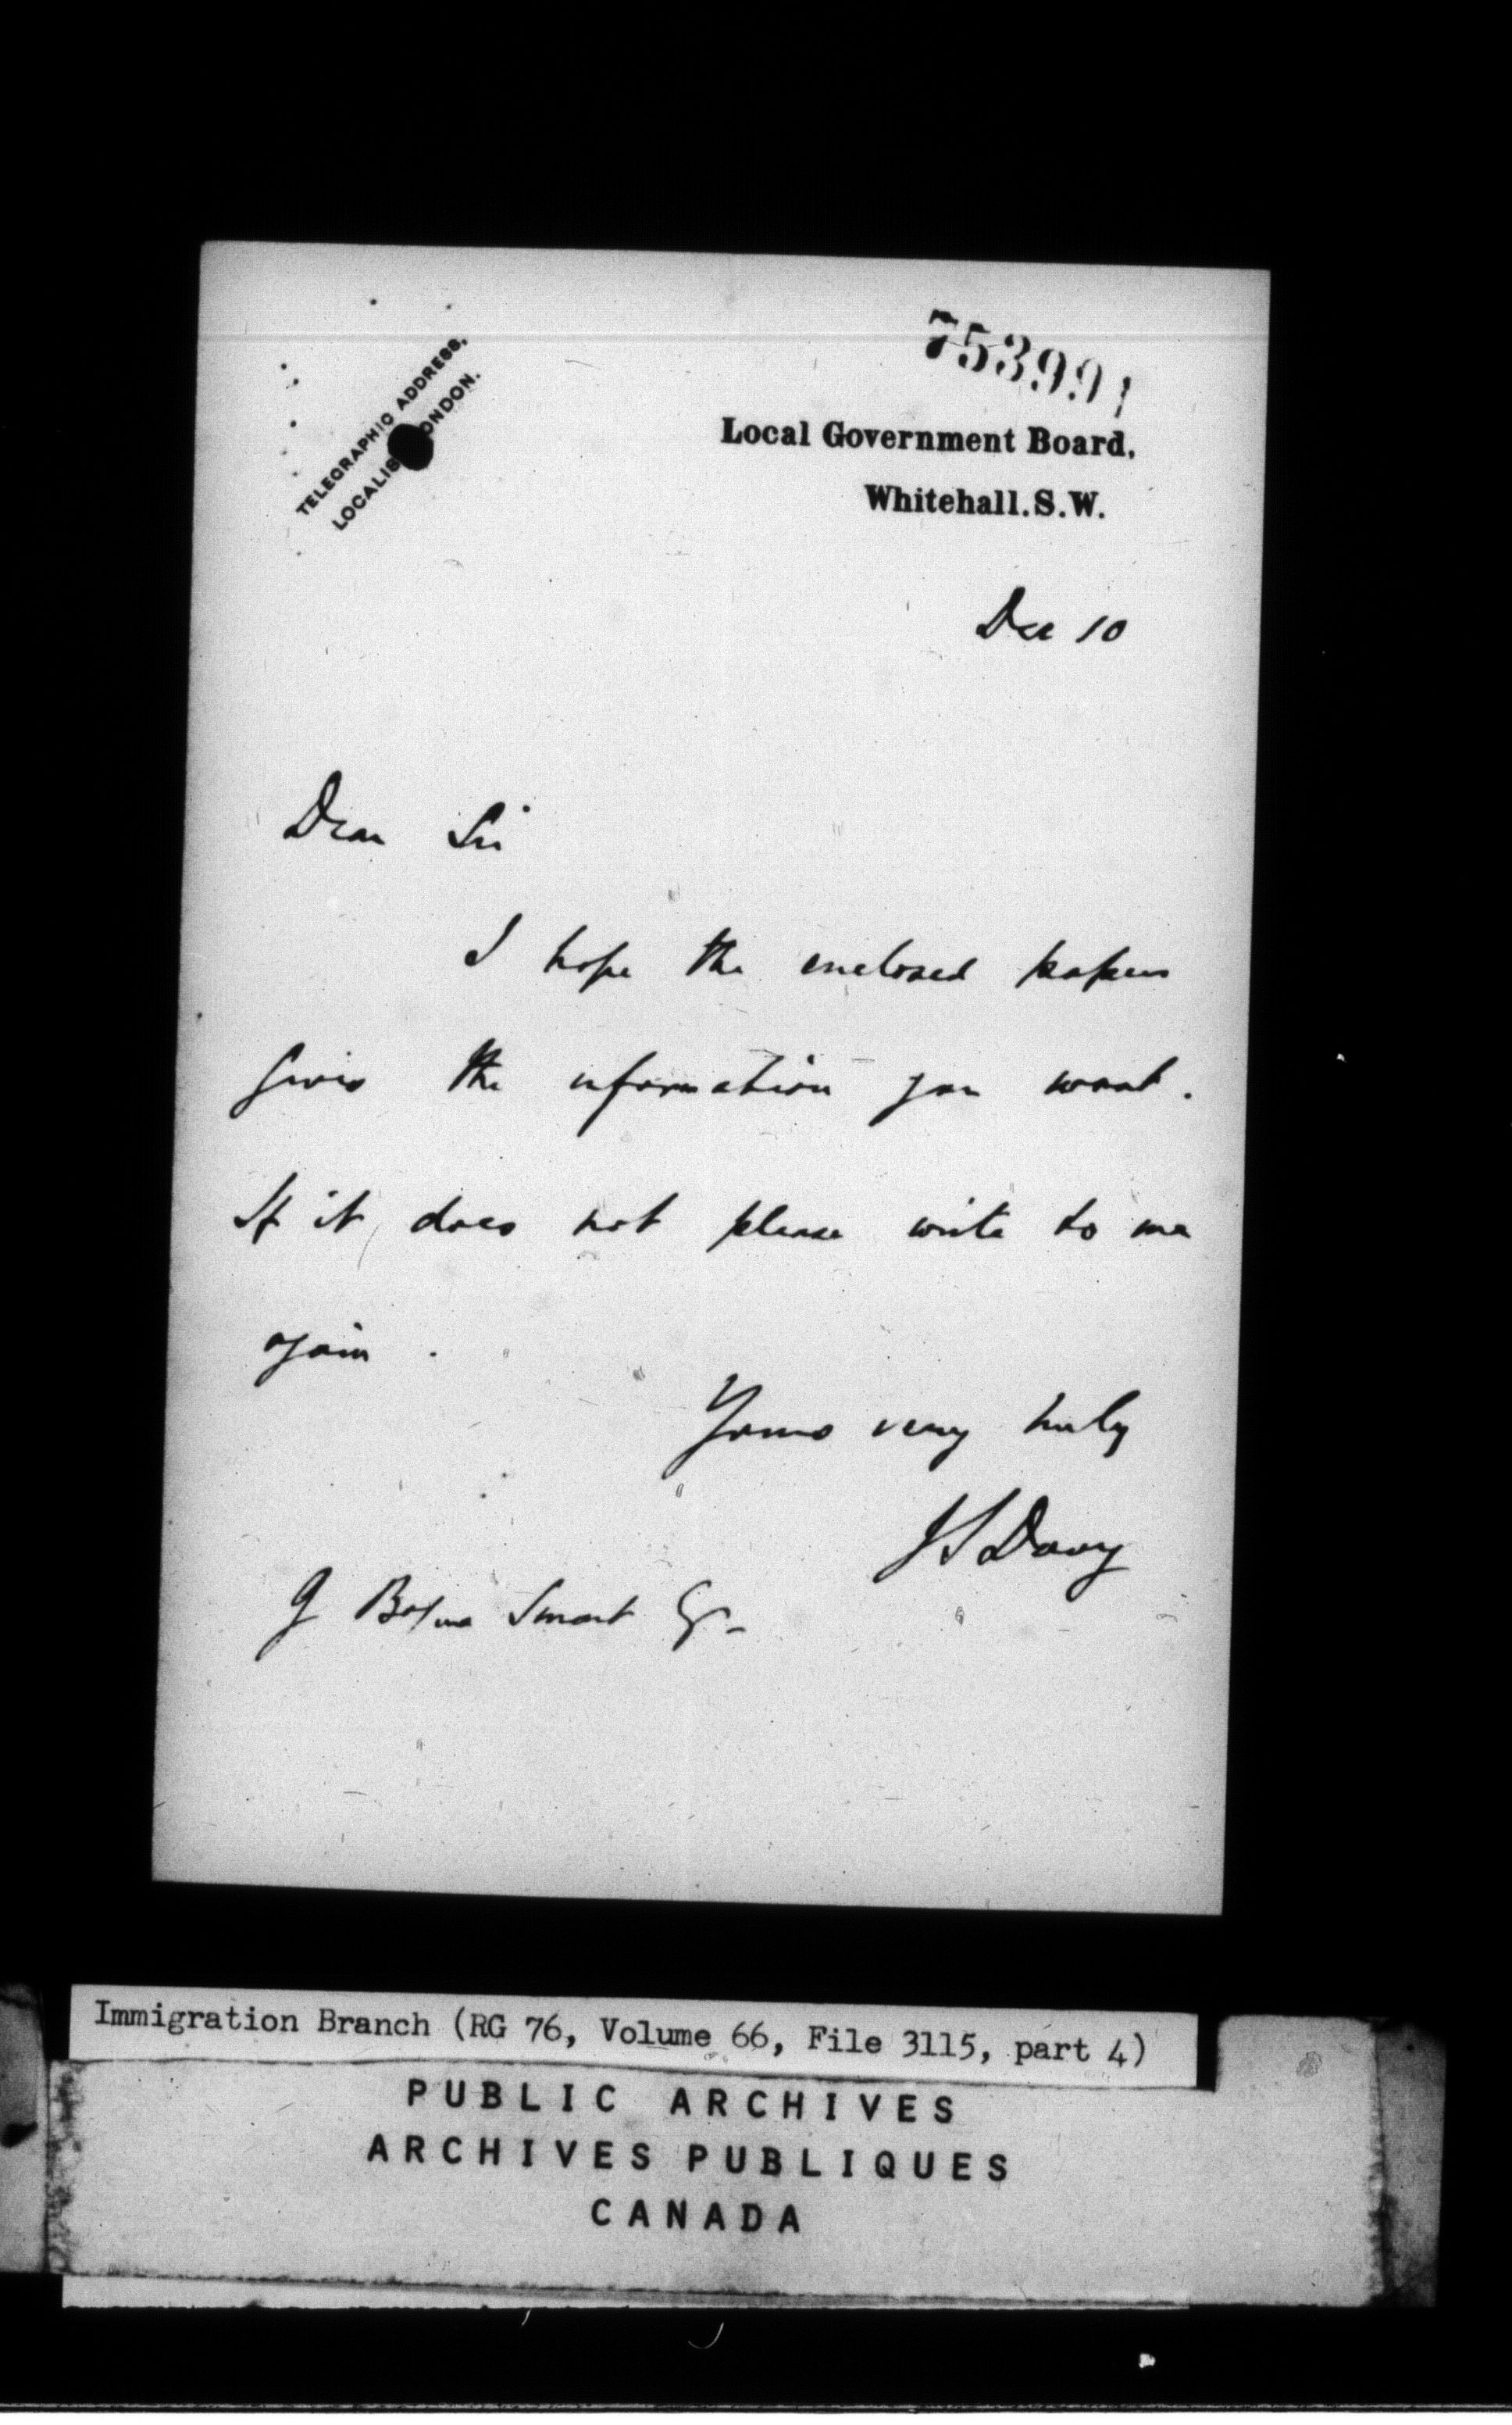 753991
TELEGRAPHIC ADDRESS,
LOCALIS LONDON.
Local Government Board,
Whitehall. S.W.
Dec 10
Dear Sir
I hope the enclosed papers
gives the information you want.
If it does not please write to me
again.
Yours very truly
J S Davy
G Bogue Smart Esq-
Immigration Branch (RG 76, Volume 66, File 3115, part 4)
PUBLIC ARCHIVES
ARCHIVES PUBLIQUES
CANADA